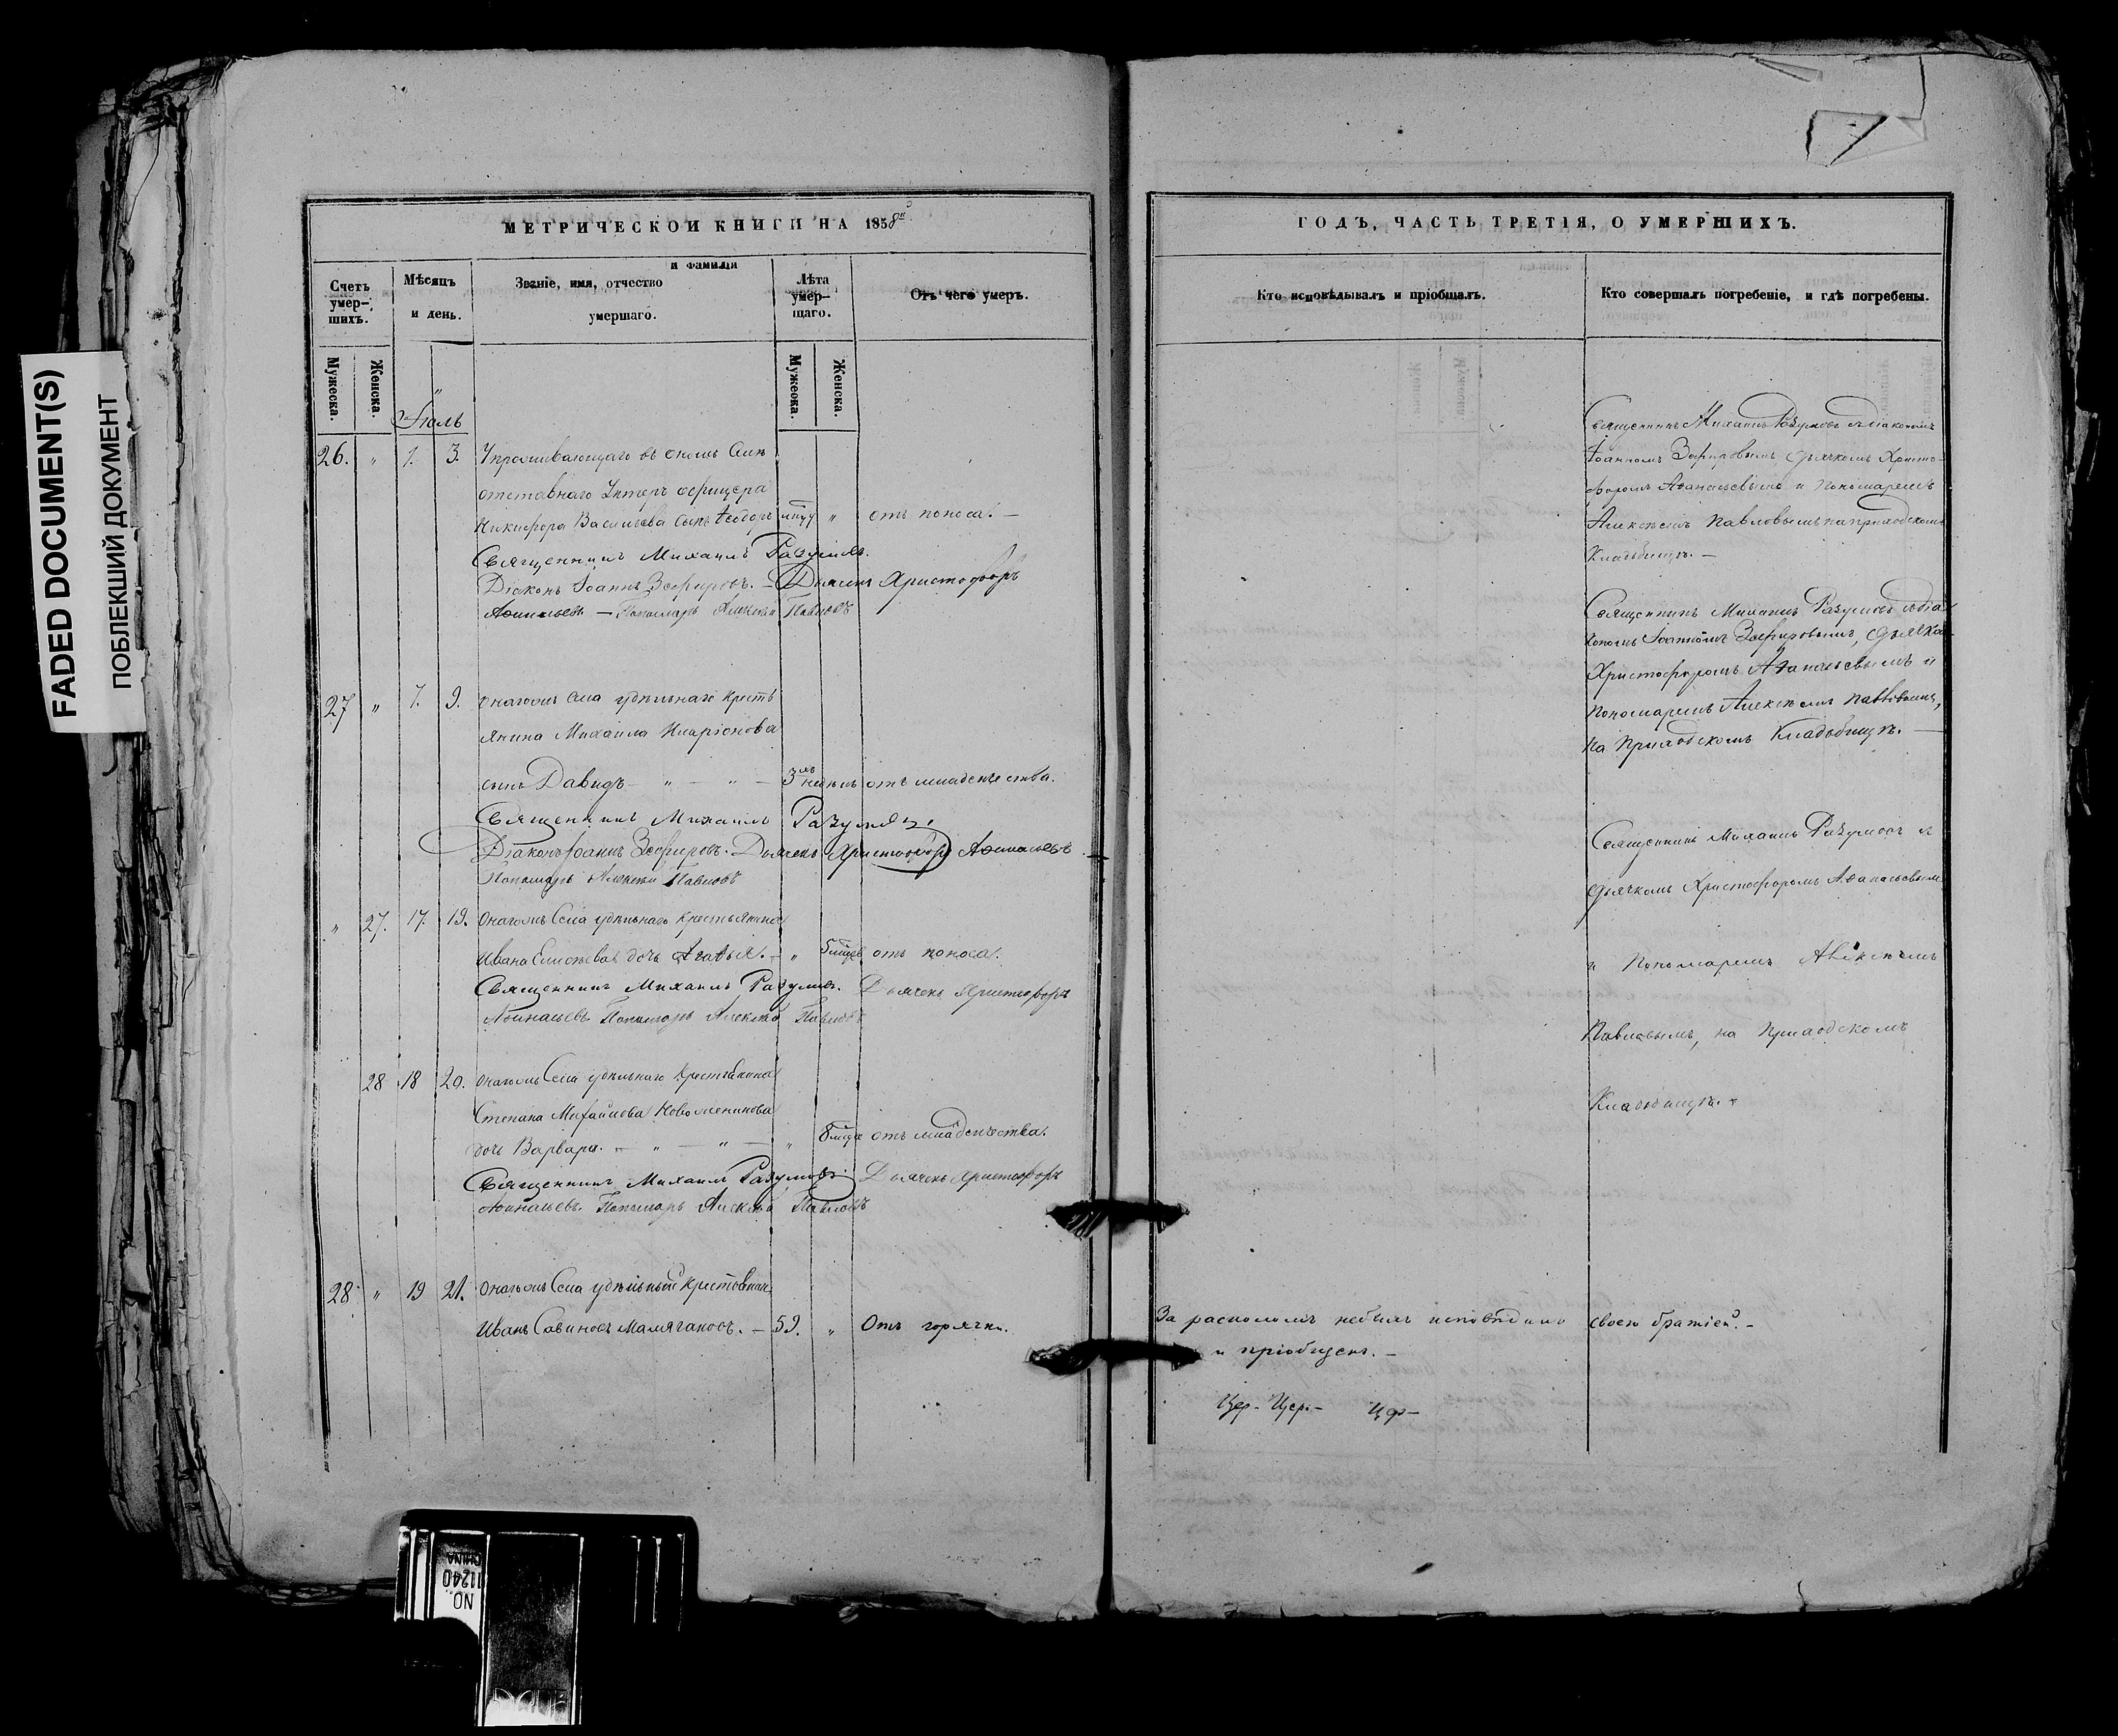 FADED DOCUMENT(S)
ПОБЛЕКШИЙ ДОКУМЕНТ
МЕТРИЧЕСКОЙ КНИГИ НА 1858й
Счетъ умер-шихъ.
Мѣсяцъ и день.
Званіе, имя, отчество и фамилія умершаго.
Лѣта умер-шаго.
Отъ чего умеръ.
Мужеска.
Женска.
Мужеска.
Женска.
Іюль
26. " 1. 3.
отставнаго Унтеръ офицера
Никифора Васильева сынъ Ѳеодоръ " отъ поноса. —
Священникъ Михаилъ Разумовъ.
Діаконъ Іоаннъ Зефировъ. — Дьячекъ Христофоръ
Аѳанасьевъ — Пономарь Алексѣй Павловъ
27 " 7. 9. Онагожъ Села удѣльнаго кресть
янина Михаила Иларіонова
сынъ Давидъ — " — " — 3хъ недѣль отъ младенчества.
Священникъ Михаилъ Разумовъ.
Діаконъ Іоаннъ Зефировъ. Дьячекъ Христофоръ Аѳанасьевъ
Пономарь Алексѣй Павловъ
" 27. 17. 19. Онагожъ Села удѣльнаго крестьянина
Ивана дочь Агаѳья. — " 5 отъ поноса.
Священникъ Михаилъ Разумовъ. Дьячекъ Христофоръ
Аѳанасьевъ. Пономарь Алексѣй Павловъ
28 18 20. Онагожъ Села удѣльнаго Крестьянина
Степана Михайлова
дочь Варвара. — " — " — " 8 отъ младенчества.
Священникъ Михаилъ Разумовъ. Дьячекъ Христофоръ
Аѳанасьевъ. Пономарь Алексѣй Павловъ
28 " 19 21. Онагожъ Села удѣльный крестьянинъ
Иванъ Савиновъ Мамягановъ. — 59. " Отъ горячки.
ГОДЪ, ЧАСТЬ ТРЕТІЯ, О УМЕРШИХЪ.
Кто исповѣдывалъ и пріобщалъ.
Кто совершалъ погребеніе, и гдѣ погребены.
Священникъ Михаилъ Разумовъ съ діакономъ
Іоанномъ Зефировымъ дьячкомъ Христо-
форомъ Аѳанасьевымъ и Пономаремъ
Алексѣемъ Павловымъ на приходскомъ
Кладбищѣ. —
Священникъ Михаилъ Разумовъ съ діа
кономъ Іоанномъ Зефировымъ, дьячко-
Христофоромъ Аѳанасьевымъ и
Пономаремъ Алексѣемъ Павловымъ,
на Приходскомъ Кладбищѣ. —
Священникъ Михаилъ Разумовъ съ
дьячкомъ Христофоромъ Аѳанасьевым
и Пономаремъ Алексѣемъ
Павловымъ, на Приходскомъ
Кладбищѣ.
За расколомъ небылъ исповѣданъ
и пріобщенъ. —
своею братіей. —
NO.
11240
CHINA